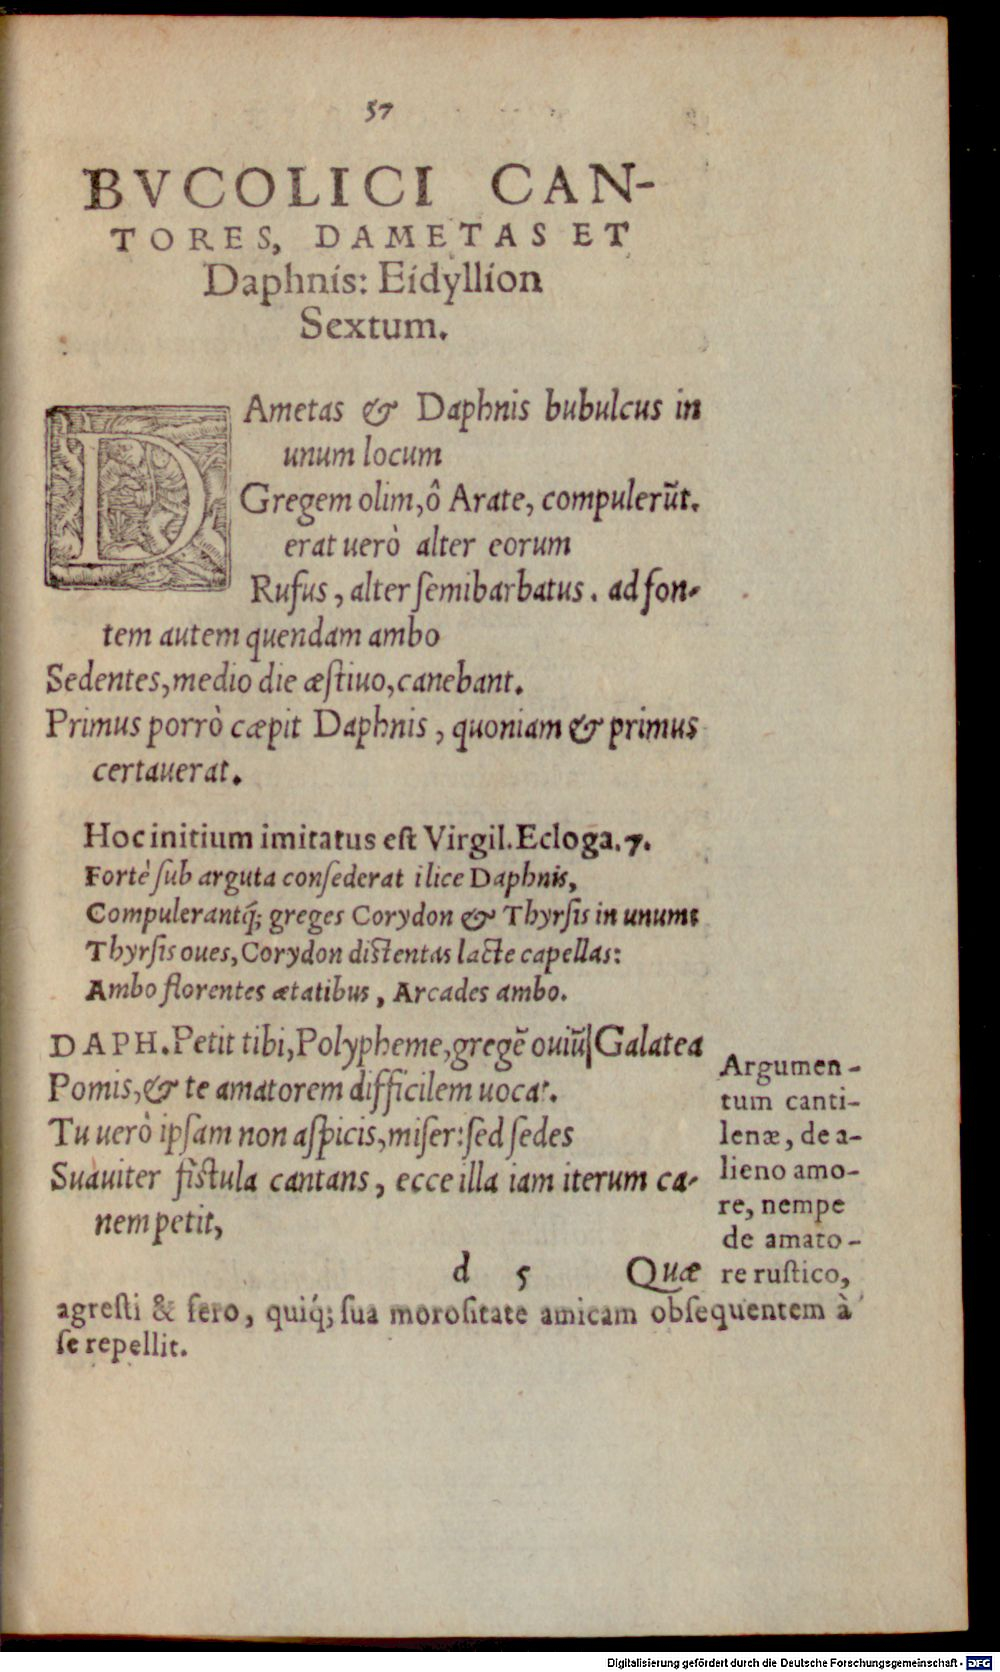 57
BVCOLICI CAN-
TORES, DAMETAS ET
Daphnis: Eidyllion
Sextum.
DAmetas & Daphnis bubulcus in
unum locum
Gregem olim, ô Arate, compulerũt.
erat uerò alter eorum
Rufus, alter ſemibarbatus. ad fon-
tem autem quendam ambo
Sedentes, medio die æſtiuo, canebant.
Primus porrò cœpit Daphnis, quoniam & primus
certauerat.
Hoc initium imitatus eſt Virgil. Ecloga. 7.
Fortè ſub arguta conſederat ilice Daphnis,
Compulerantq́; greges Corydon & Thyrſis in unum:
Thyrſis oues, Corydon diſtentas lacte capellas:
Ambo florentes ætatibus, Arcades ambo.
DAPH. Petit tibi, Polypheme, gregẽ ouiũ| Galatea
Pomis, & te amatorem difficilem uocat.
Tu uerò ipſam non aſpicis, miſer: ſed ſedes
Suauiter fiſtula cantans, ecce illa iam iterum ca-
nem petit,
d 5 Quæ
Argumen-
tum canti-
lenæ, de a-
lieno amo-
re, nempe
de amato-
re ruſtico,
agreſti & fero, quiq́; ſua moroſitate amicam obſequentem à
ſe repellit.
Digitalisierung gefördert durch die Deutsche Forschungsgemeinschaft - DFG